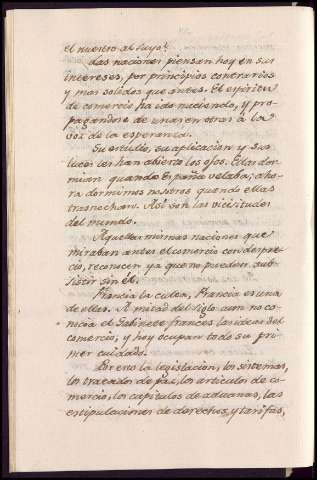 el nuestro al suyo.
Las naciones piensan hoy en sus
intereses, por principios contrarios
y mas solidos que antes. El espiritu
de comercio ha ido naciendo, y pro-
pagandose de unas en otras à la
voz de la esperanza.
Su estudio, su aplicacion y sus
luces les han abierto los ojos. Ellas dor-
mian quando España velaba; aho-
ra dormimos nosotros quando ellas
trasnochan. Asi son las vicisitudes
del mundo.
Aquellas mismas naciones que
miraban antes el comercio con despre-
cio, reconocen ya que no pueden sub-
sistir sin él.
Francia la culta, Francia es una
de ellas. A mitad del siglo aun no co-
nocia el Gabinete frances las ideas del
comercio, y hoy ocupan todo su pri-
mer cuidado.
Por esto la legislacion, los sistemas,
los tratados de paz, los articulos de co-
mercio, los capitulos de aduanas, las
estipulaciones de derechos, y tarifas,